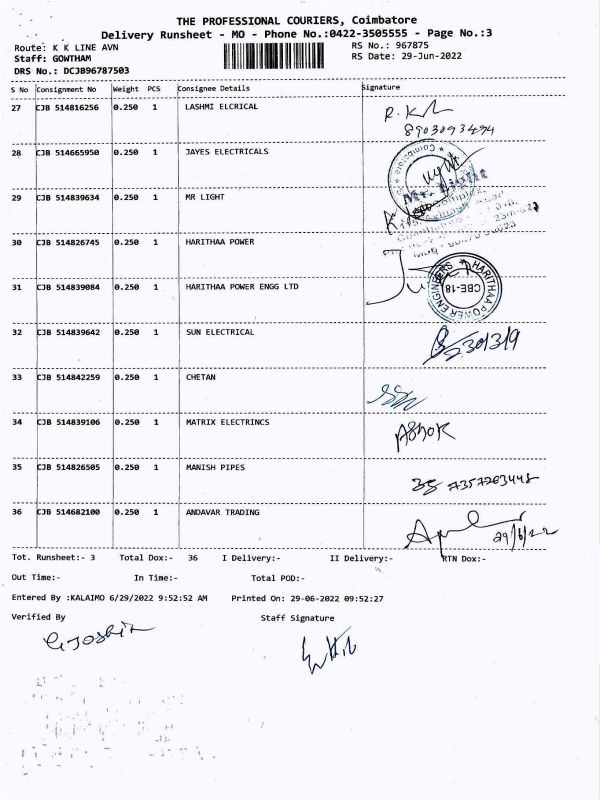 THE PROFESSIONAL COURIERS, Coimbatore
Delivery Runsheet - MO - Phone No.:0422-3505555 - Page No.:3
Route: K K LINE AVN RS No.: 967875
Staff: GOWTHAM RS Date: 29-Jun-2022
DRS No.: DCJB96787503
S No Consignment No Weight PCS Consignee Details Signature
27 CJB 514816256 0.250 1 LASHMI ELCRICAL
8903093494
28 CJB 514665950 0.250 1 JAYES ELECTRICALS
Mr. Light
29 CJB 514839634 0.250 1 MR LIGHT
30 CJB 514826745 0.250 1 HARITHAA POWER
HARITHAA POWER ENGINEERS
CBE-18
31 CJB 514839084 0.250 1 HARITHAA POWER ENGG LTD
32 CJB 514839642 0.250 1 SUN ELECTRICAL
33 CJB 514842259 0.250 1 CHETAN
34 CJB 514839106 0.250 1 MATRIX ELECTRINCS
Ashok
35 CJB 514826505 0.250 1 MANISH PIPES
36 CJB 514682100 0.250 1 ANDAVAR TRADING
29/6/22
Tot. Runsheet:- 3 Total Dox:- 36 I Delivery:- II Delivery:- RTN Dox:-
Out Time:- In Time:- Total POD:-
Entered By :KALAIMO 6/29/2022 9:52:52 AM Printed On: 29-06-2022 09:52:27
Verified By Staff Signature